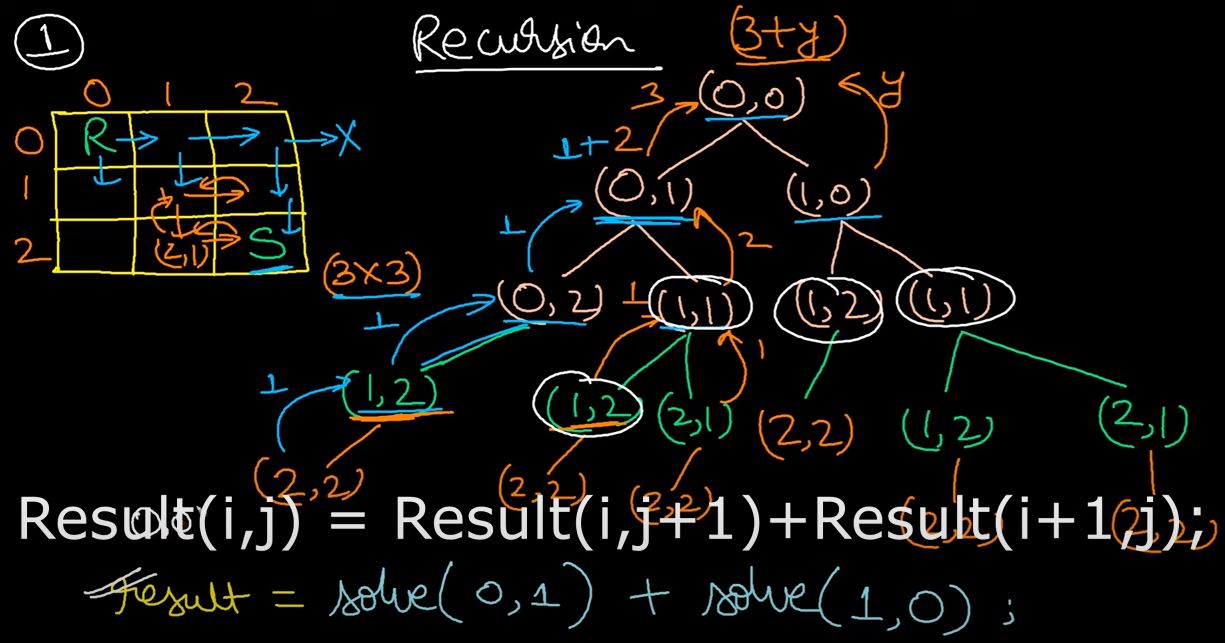 1 Recursion (3+y)
0 1 2
3 (0,0) y
0 R X
1+2
1 (0,1) (1,0)
1 2
2 (2,1) S
(3×3)
(0,2) 1 (1,1) (1,2) (1,1)
1 1
1 (1,2) (1,2 (2,1) (2,2) (1,2) (2,1)
(2,2) (2,2) (2,2) (2,2) (2,2)
Result(i,j) = Result(i,j+1)+Result(i+1,j);
result = solve(0,1) + solve(1,0);